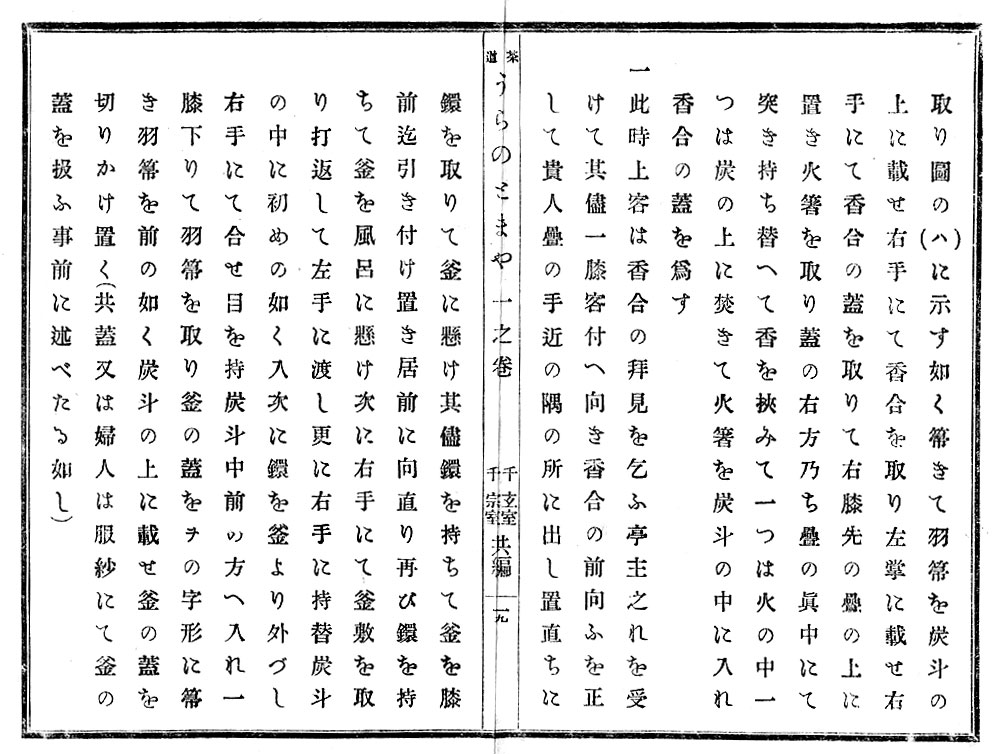 取り圖の(ハ)に示す如く箒きて羽箒を炭斗の
上に載せ右手にて香合を取り左掌に載せ右
手にて香合の蓋を取りて右膝先の疊の上に
置き火箸を取り蓋の右方乃ち疊の眞中にて
突き持ち替へて香を挾みて一つは火の中一
つは炭の上に焚きて火箸を炭斗の中に入れ
香合の蓋を爲す
一此時上客は香合の拜見を乞ふ亭主之れを受
けて其儘一膝客付へ向き香合の前向ふを正
して貴人疊の手近の隅の所に出し置直ちに
茶道
うらのとまや一之卷
千玄室
千宗室
共編
一九
鐶を取りて釜に懸け其儘鐶を持ちて釜を膝
前迄引き付け置き居前に向直り再び鐶を持
ちて釜を風呂に懸け次に右手にて釜敷を取
り打返して左手に渡し更に右手に持替炭斗
の中に初めの如く入次に鐶を釜より外づし
右手にて合せ目を持炭斗中前の方へ入れ一
膝下りて羽箒を取り釜の蓋をヲの字形に箒
き羽箒を前の如く炭斗の上に載せ釜の蓋を
切りかけ置く(共蓋又は婦人は服紗にて釜の
蓋を扱ふ事前に述べたる如し)